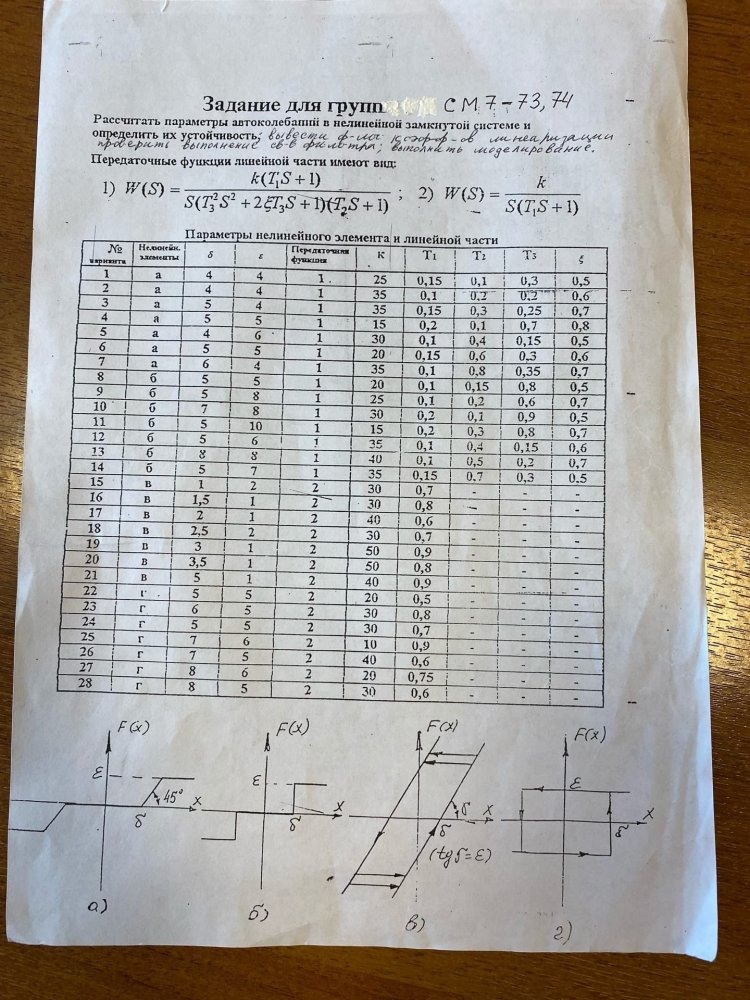 Задание для групп СМ7-73,74
Рассчитать параметры автоколебаний в нелинейной замкнутой системе и
определить их устойчивость; вывести ф-лы коэфф-ов линеаризации
проверить выполнение св-в фильтра; выполнить моделирование.
Передаточные функции линейной части имеют вид:
1) W(S) = k(T₁S + 1) / S(T₃²S² + 2ξT₃S + 1)(T₂S + 1) ; 2) W(S) = k / S(T₁S + 1)
Параметры нелинейного элемента и линейной части
№ варианта Нелинейн. элементы δ ε Передаточная функция К T₁ T₂ T₃ ξ
1 а 4 4 1 25 0,15 0,1 0,3 0,5
2 а 4 4 1 35 0,1 0,2 0,2 0,6
3 а 5 4 1 35 0,15 0,3 0,25 0,7
4 а 5 5 1 15 0,2 0,1 0,7 0,8
5 а 4 6 1 30 0,1 0,4 0,15 0,5
6 а 5 5 1 20 0,15 0,6 0,3 0,6
7 а 6 4 1 35 0,1 0,8 0,35 0,7
8 б 5 5 1 20 0,1 0,15 0,8 0,5
9 б 5 8 1 25 0,1 0,2 0,6 0,7
10 б 7 8 1 30 0,2 0,1 0,9 0,5
11 б 5 10 1 15 0,2 0,3 0,8 0,7
12 б 5 6 1 35 0,1 0,4 0,15 0,6
13 б 8 8 1 40 0,1 0,5 0,2 0,7
14 б 5 7 1 35 0,15 0,7 0,3 0,5
15 в 1 2 2 30 0,7 - - -
16 в 1,5 1 2 30 0,8 - - -
17 в 2 1 2 40 0,6 - - -
18 в 2,5 2 2 30 0,7 - - -
19 в 3 1 2 50 0,9 - - -
20 в 3,5 1 2 50 0,8 - - -
21 в 5 1 2 40 0,9 - - -
22 г 5 5 2 20 0,5 - - -
23 г 6 5 2 30 0,8 - - -
24 г 5 5 2 30 0,7 - - -
25 г 7 6 2 10 0,9 - - -
26 г 7 5 2 40 0,6 - - -
27 г 8 6 2 20 0,75 - - -
28 г 8 5 2 30 0,6 - - -
F(x) F(x) F(x) F(x)
ε ε ε
45° x x x x
δ δ δ δ
(tgγ=ε)
а) б) в) г)